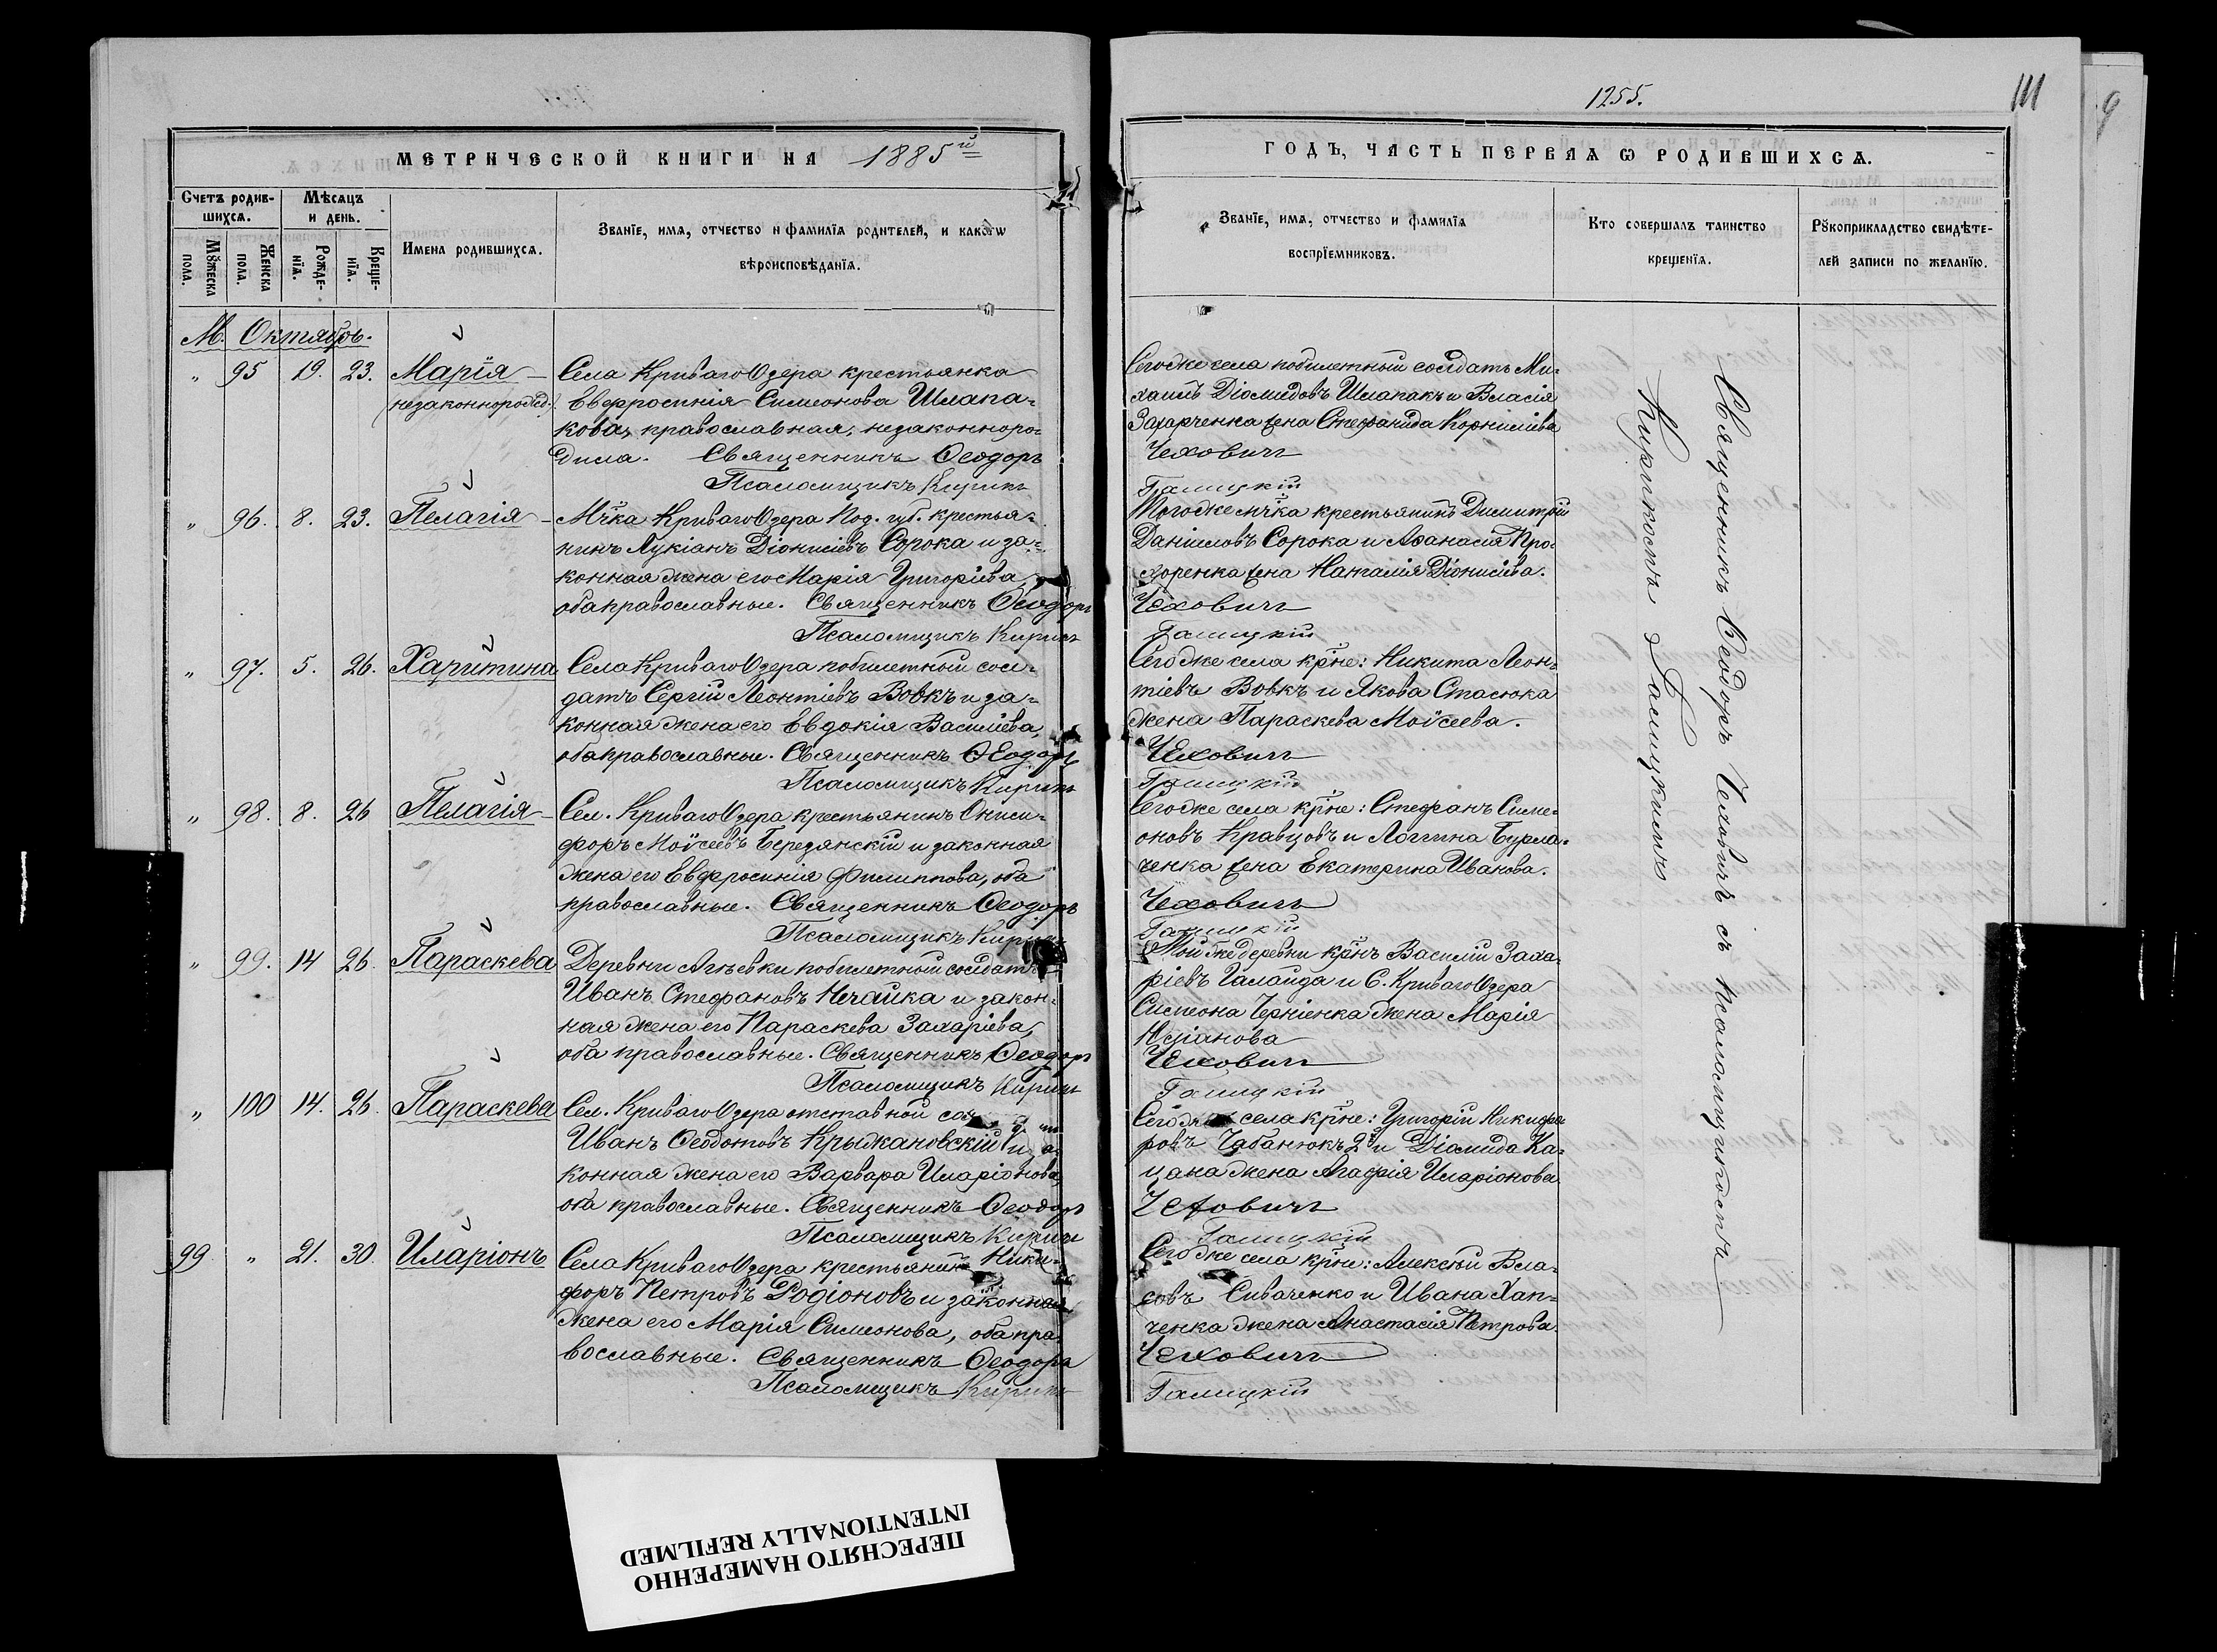 1255.
111
9
МЕТРИЧЕСКОЙ КНИГИ НА 1885й
ГОДЪ, ЧАСТЬ ПЕРВАЯ Ѡ РОДИВШИХСЯ.
Счетъ родив-
шихсѧ.
Мѣсяцъ
и день.
Мꙋжеска
пола.
Женска
пола.
Рожде-
нїѧ.
Креще-
нїѧ.
Имена родившихсѧ.
Званїе, имѧ, отчество и фамилїѧ родителей, и какогѡ
вѣроисповѣданїѧ.
Званїе, имѧ, отчество и фамилїѧ
воспрїемниковъ.
Кто совершалъ таинство
крещенїѧ.
Рꙋкоприкладство свидѣте-
лей записи по желанїю.
М. Октябрь.
„ 95 19. 23. Марія
(незаконнорожд.)
Села Криваго Озера крестьянка
Евфросинія Симеонова Шлапа-
кова, православная, незаконноро-
дила. Священникъ Ѳеодоръ
Псаломщикъ Кирикъ
Сегоже села побилетный солдатъ Ми-
хаилъ Діомидовъ Шлапакъ и Власія
Захарченка жена Стефанида Корниліева
Чеховичъ
Галицкій
„ 96. 8. 23. Пелагія
М-чка Криваго Озера Под. губ. крестья-
нинъ Лукіанъ Діонисіевъ Сорока и за-
конная жена его Марія Григоріева,
оба православные. Священникъ Ѳеодоръ
Псаломщикъ Кирикъ
Тогоже м-чка крестьянинъ Димитрій
Даніиловъ Сорока и Аѳанасія Про-
хоренка жена Наталія Діонисіева.
Чеховичъ
Галицкій
„ 97. 5. 26. Харитина
Села Криваго Озера побилетный сол-
датъ Сергій Леонтіевъ Вовкъ и за-
конная жена его Евдокія Василіева,
оба православные. Священникъ Ѳеодоръ
Псаломщикъ Кирикъ
Сегоже села кр-не: Никита Леон-
тіевъ Вовкъ и Якова Стасюка
жена Параскева Моѵсеева.
Чеховичъ
Галицкій
„ 98. 8. 26 Пелагія
Сел. Криваго Озера крестьянинъ Ониси-
форъ Моѵсеевъ Березянскій и законная
жена его Евфросинія Филиппова, оба
православные. Священникъ Ѳеодоръ
Псаломщикъ Кирикъ
Сегоже села кр-не: Стефанъ Симе-
оновъ Кравцовъ и Логгина Бурла-
ченка жена Екатерина Иванова.
Чеховичъ
Галицкій
„ 99. 14 26. Параскева
Деревни побилетный солдатъ
Иванъ Стефановъ Нечайка и закон-
ная жена его Параскева Захаріева,
оба православные. Священникъ Ѳеодоръ
Псаломщикъ Кирикъ
Той же деревни кр-нъ Василій Заха-
ріевъ Галайда и С. Криваго Озера
Симеона Черніенка жена Марія
Чеховичъ
Галицкій
„ 100 14. 26. Параскева
Сел. Криваго Озера отставной
Иванъ Ѳеодотовъ Крыжановскій и за-
конная жена его Варвара Иларіонова,
оба православные. Священникъ Ѳеодоръ
Псаломщикъ Кирикъ
Сегоже села кр-не: Григорій Никифо-
ровъ Чабанюкъ 2й и Діомида Ка-
цана жена Агафія Иларіонова
Чеховичъ
Галицкій
99 „ 21. 30. Иларіонъ
Села Криваго Озера крестьянинъ Ники-
форъ Петровъ Родіоновъ и законная
жена его Марія Симеонова, оба пра-
вославные. Священникъ Ѳеодоръ
Псаломщикъ Кирикъ
Сегоже села кр-не: Алексѣй Вла-
совъ Сиваченко и Ивана Хап-
ченка жена Анастасія Петрова.
Чеховичъ
Галицкій
Священникъ Ѳеодоръ Чеховичъ съ псаломщикомъ
Кирикомъ Галицкимъ
ПЕРЕСНЯТО НАМЕРЕННО
INTENTIONALLY REFILMED